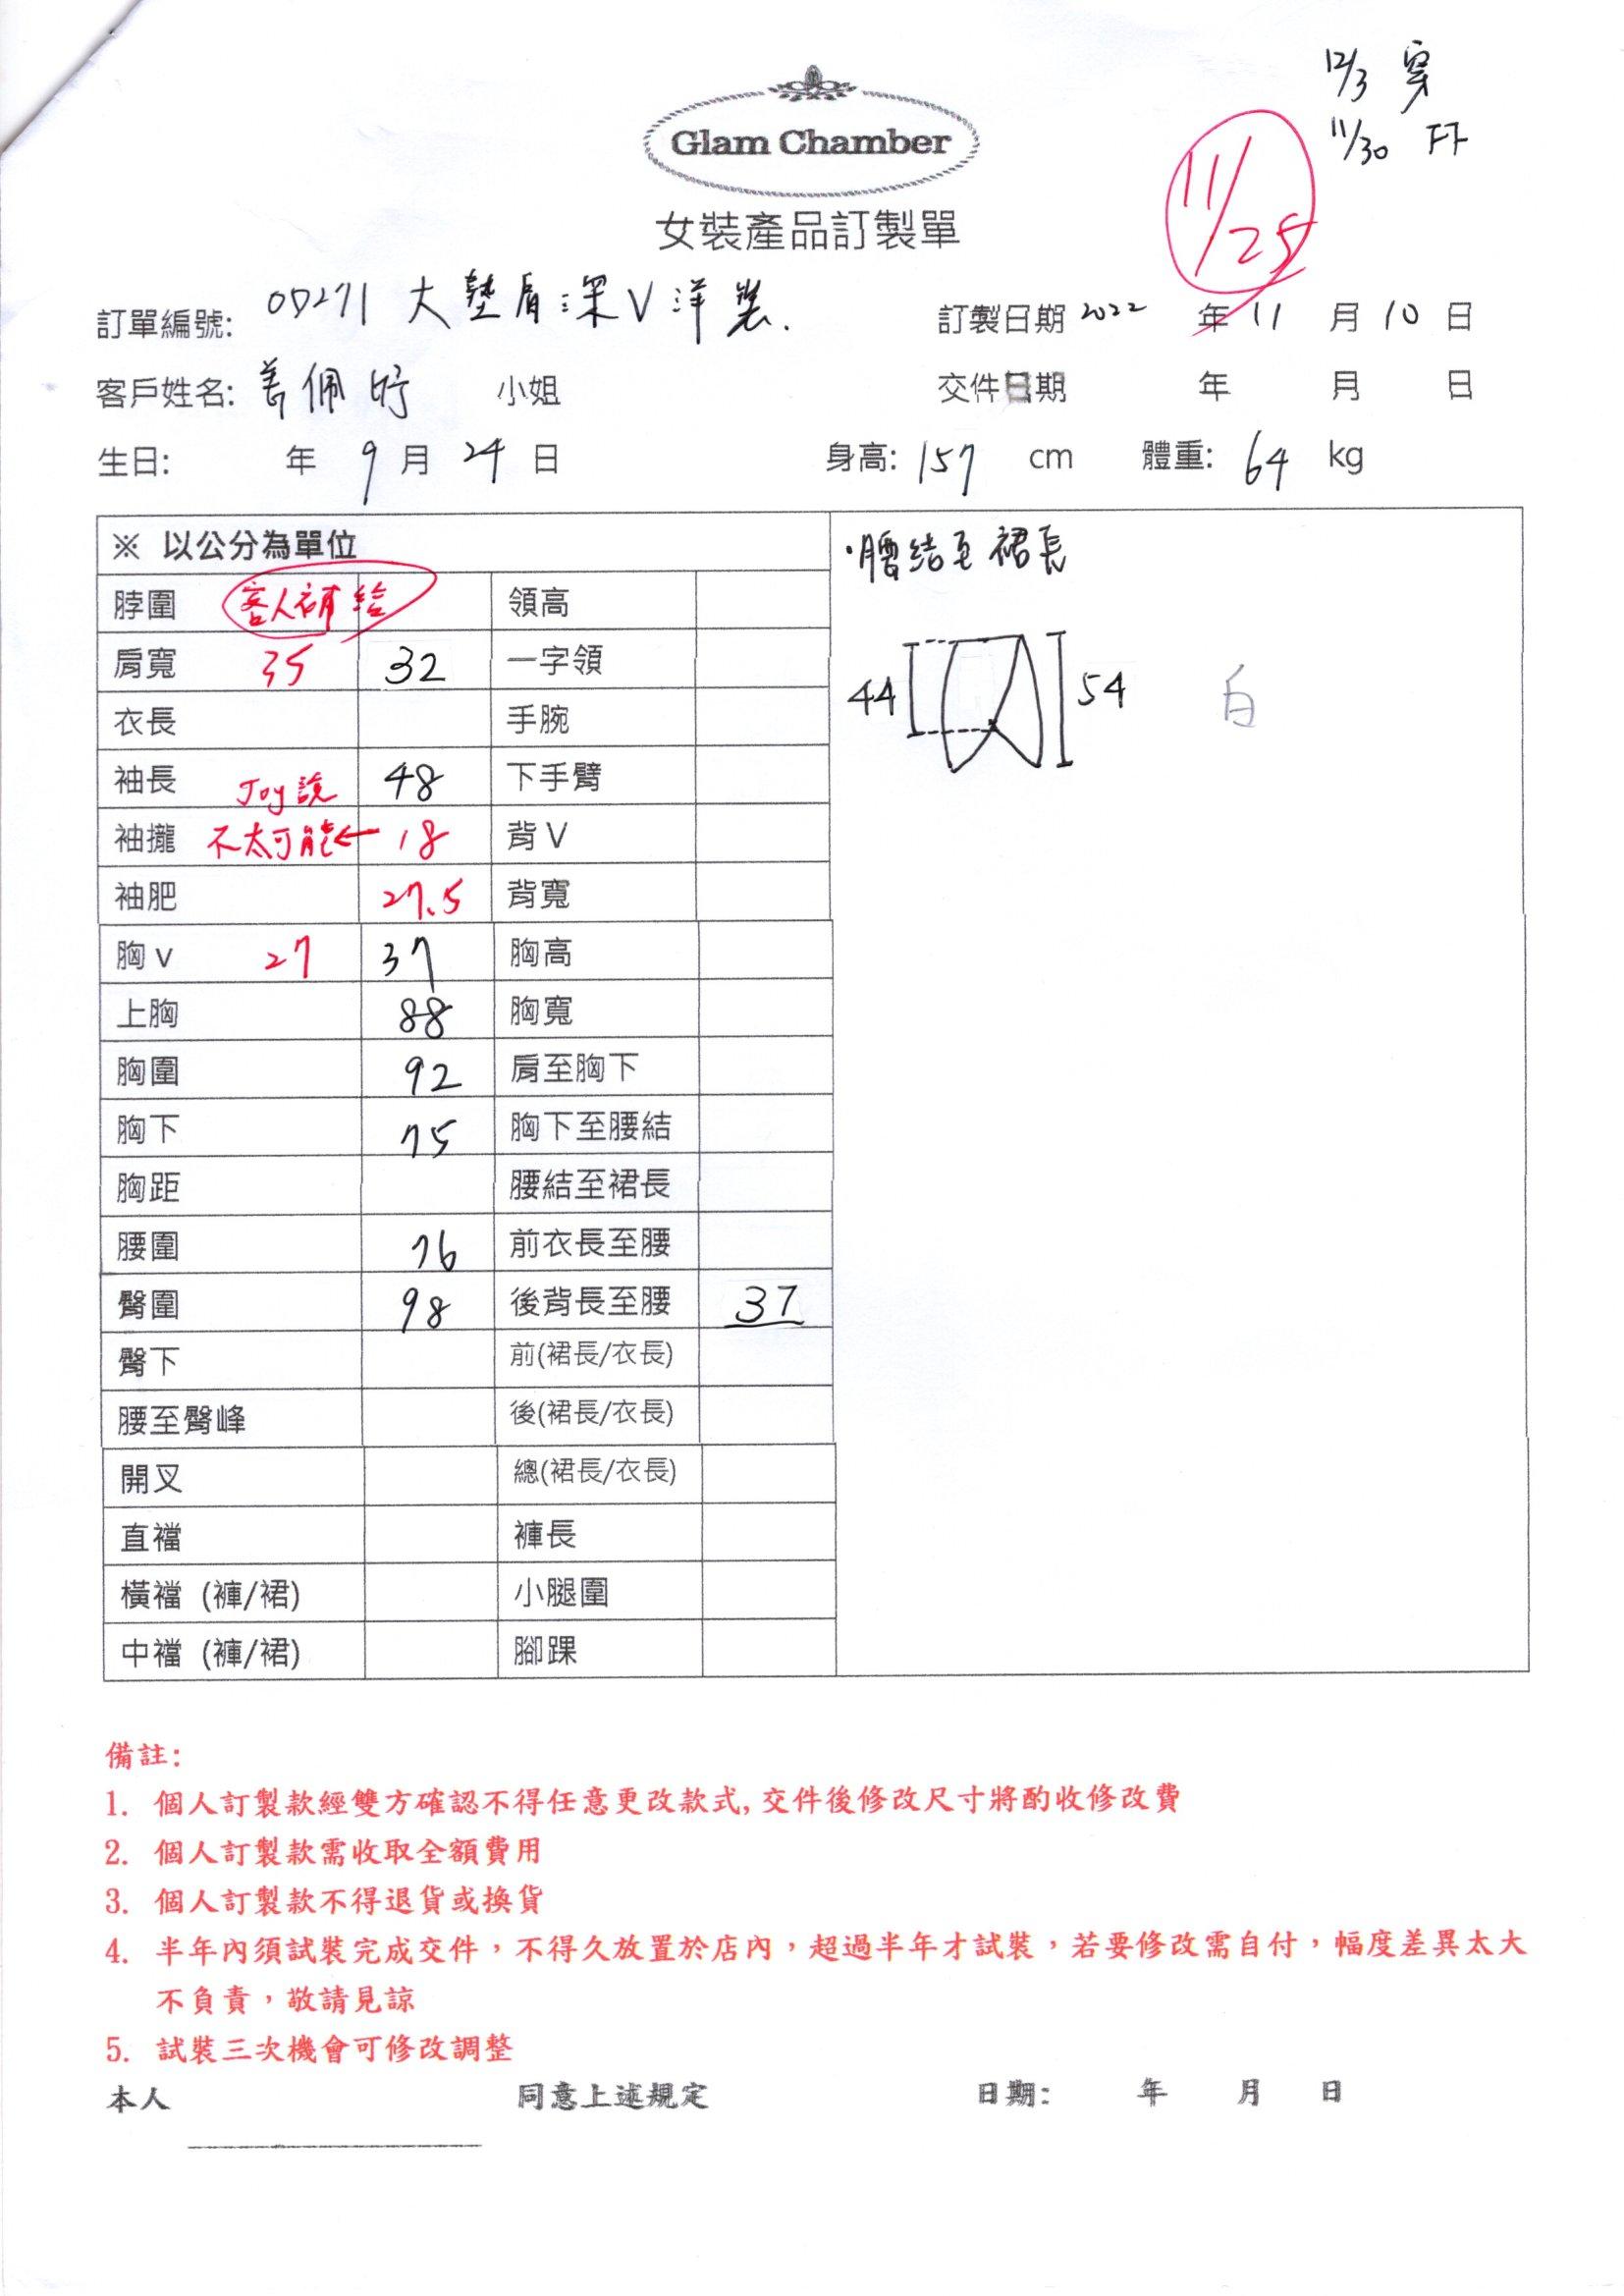 12/3 穿
11/30 FF
11/25
Glam Chamber
女裝產品訂製單
訂單編號: OD271 大墊肩深V洋裝. 訂製日期 2022 年 11 月 10 日
客戶姓名: 佩妤 小姐 交件日期 年 月 日
生日: 年 9 月 24 日 身高: 157 cm 體重: 64 kg
※ 以公分為單位
脖圍 客人補給 領高
肩寬 35 32 一字領
衣長 手腕
袖長 Joy說 48 下手臂
袖攏 不太可能← 18 背V
袖肥 27.5 背寬
胸v 27 37 胸高
上胸 88 胸寬
胸圍 92 肩至胸下
胸下 75 胸下至腰結
胸距 腰結至裙長
腰圍 76 前衣長至腰
臀圍 98 後背長至腰 37
臀下 前(裙長/衣長)
腰至臀峰 後(裙長/衣長)
開叉 總(裙長/衣長)
直襠 褲長
橫襠 (褲/裙) 小腿圍
中襠 (褲/裙) 腳踝
·腰結至裙長
44 54 白
備註:
1. 個人訂製款經雙方確認不得任意更改款式,交件後修改尺寸將酌收修改費
2. 個人訂製款需收取全額費用
3. 個人訂製款不得退貨或換貨
4. 半年內須試裝完成交件，不得久放置於店內，超過半年才試裝，若要修改需自付，幅度差異太大
不負責，敬請見諒
5. 試裝三次機會可修改調整
本人 同意上述規定 日期: 年 月 日